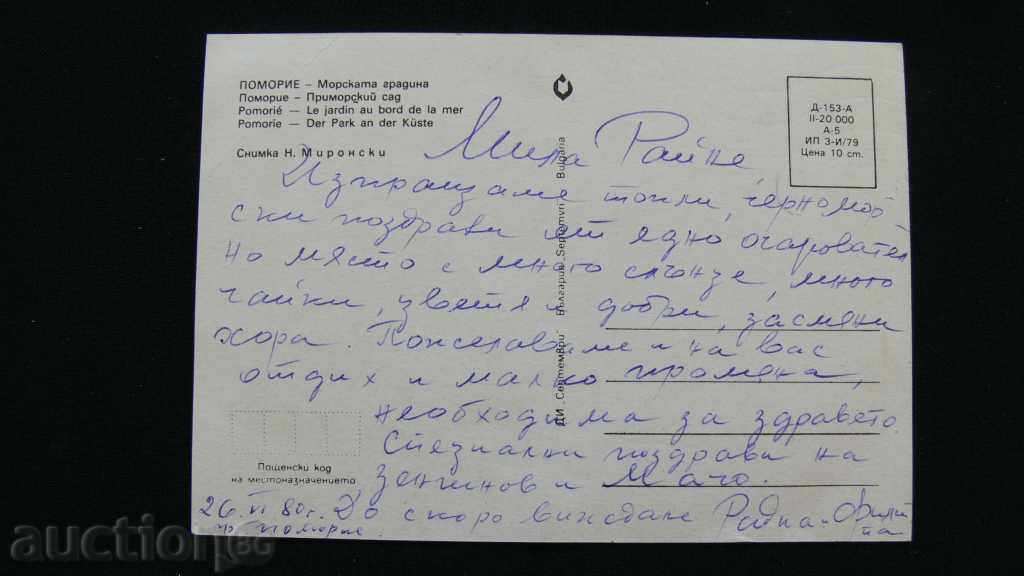 ПОМОРИЕ – Морската градина
Поморие – Приморский сад
Pomorié — Le jardin au bord de la mer
Pomorie — Der Park an der Küste
Снимка Н. Миронски
Д-153-А
II-20 000
А-5
ИП 3-И/79
Цена 10 ст.
ДИ „Септември" България „Septemvri" Bulgaria
Мила Райне,
Изпращаме топли, черномор
ски поздрави от едно очаровател
но място с много слънце, много
чайки, цветя и добри, засмяни
хора. Пожелаваме и на вас
отдих и малко промяна,
необходима за здравето.
Специални поздрави на
и Мачо.
Пощенски код
на местоназначението
26 VI 80г. До скоро виждане Радка и Фили
па
гр. Поморие.
auctionBG